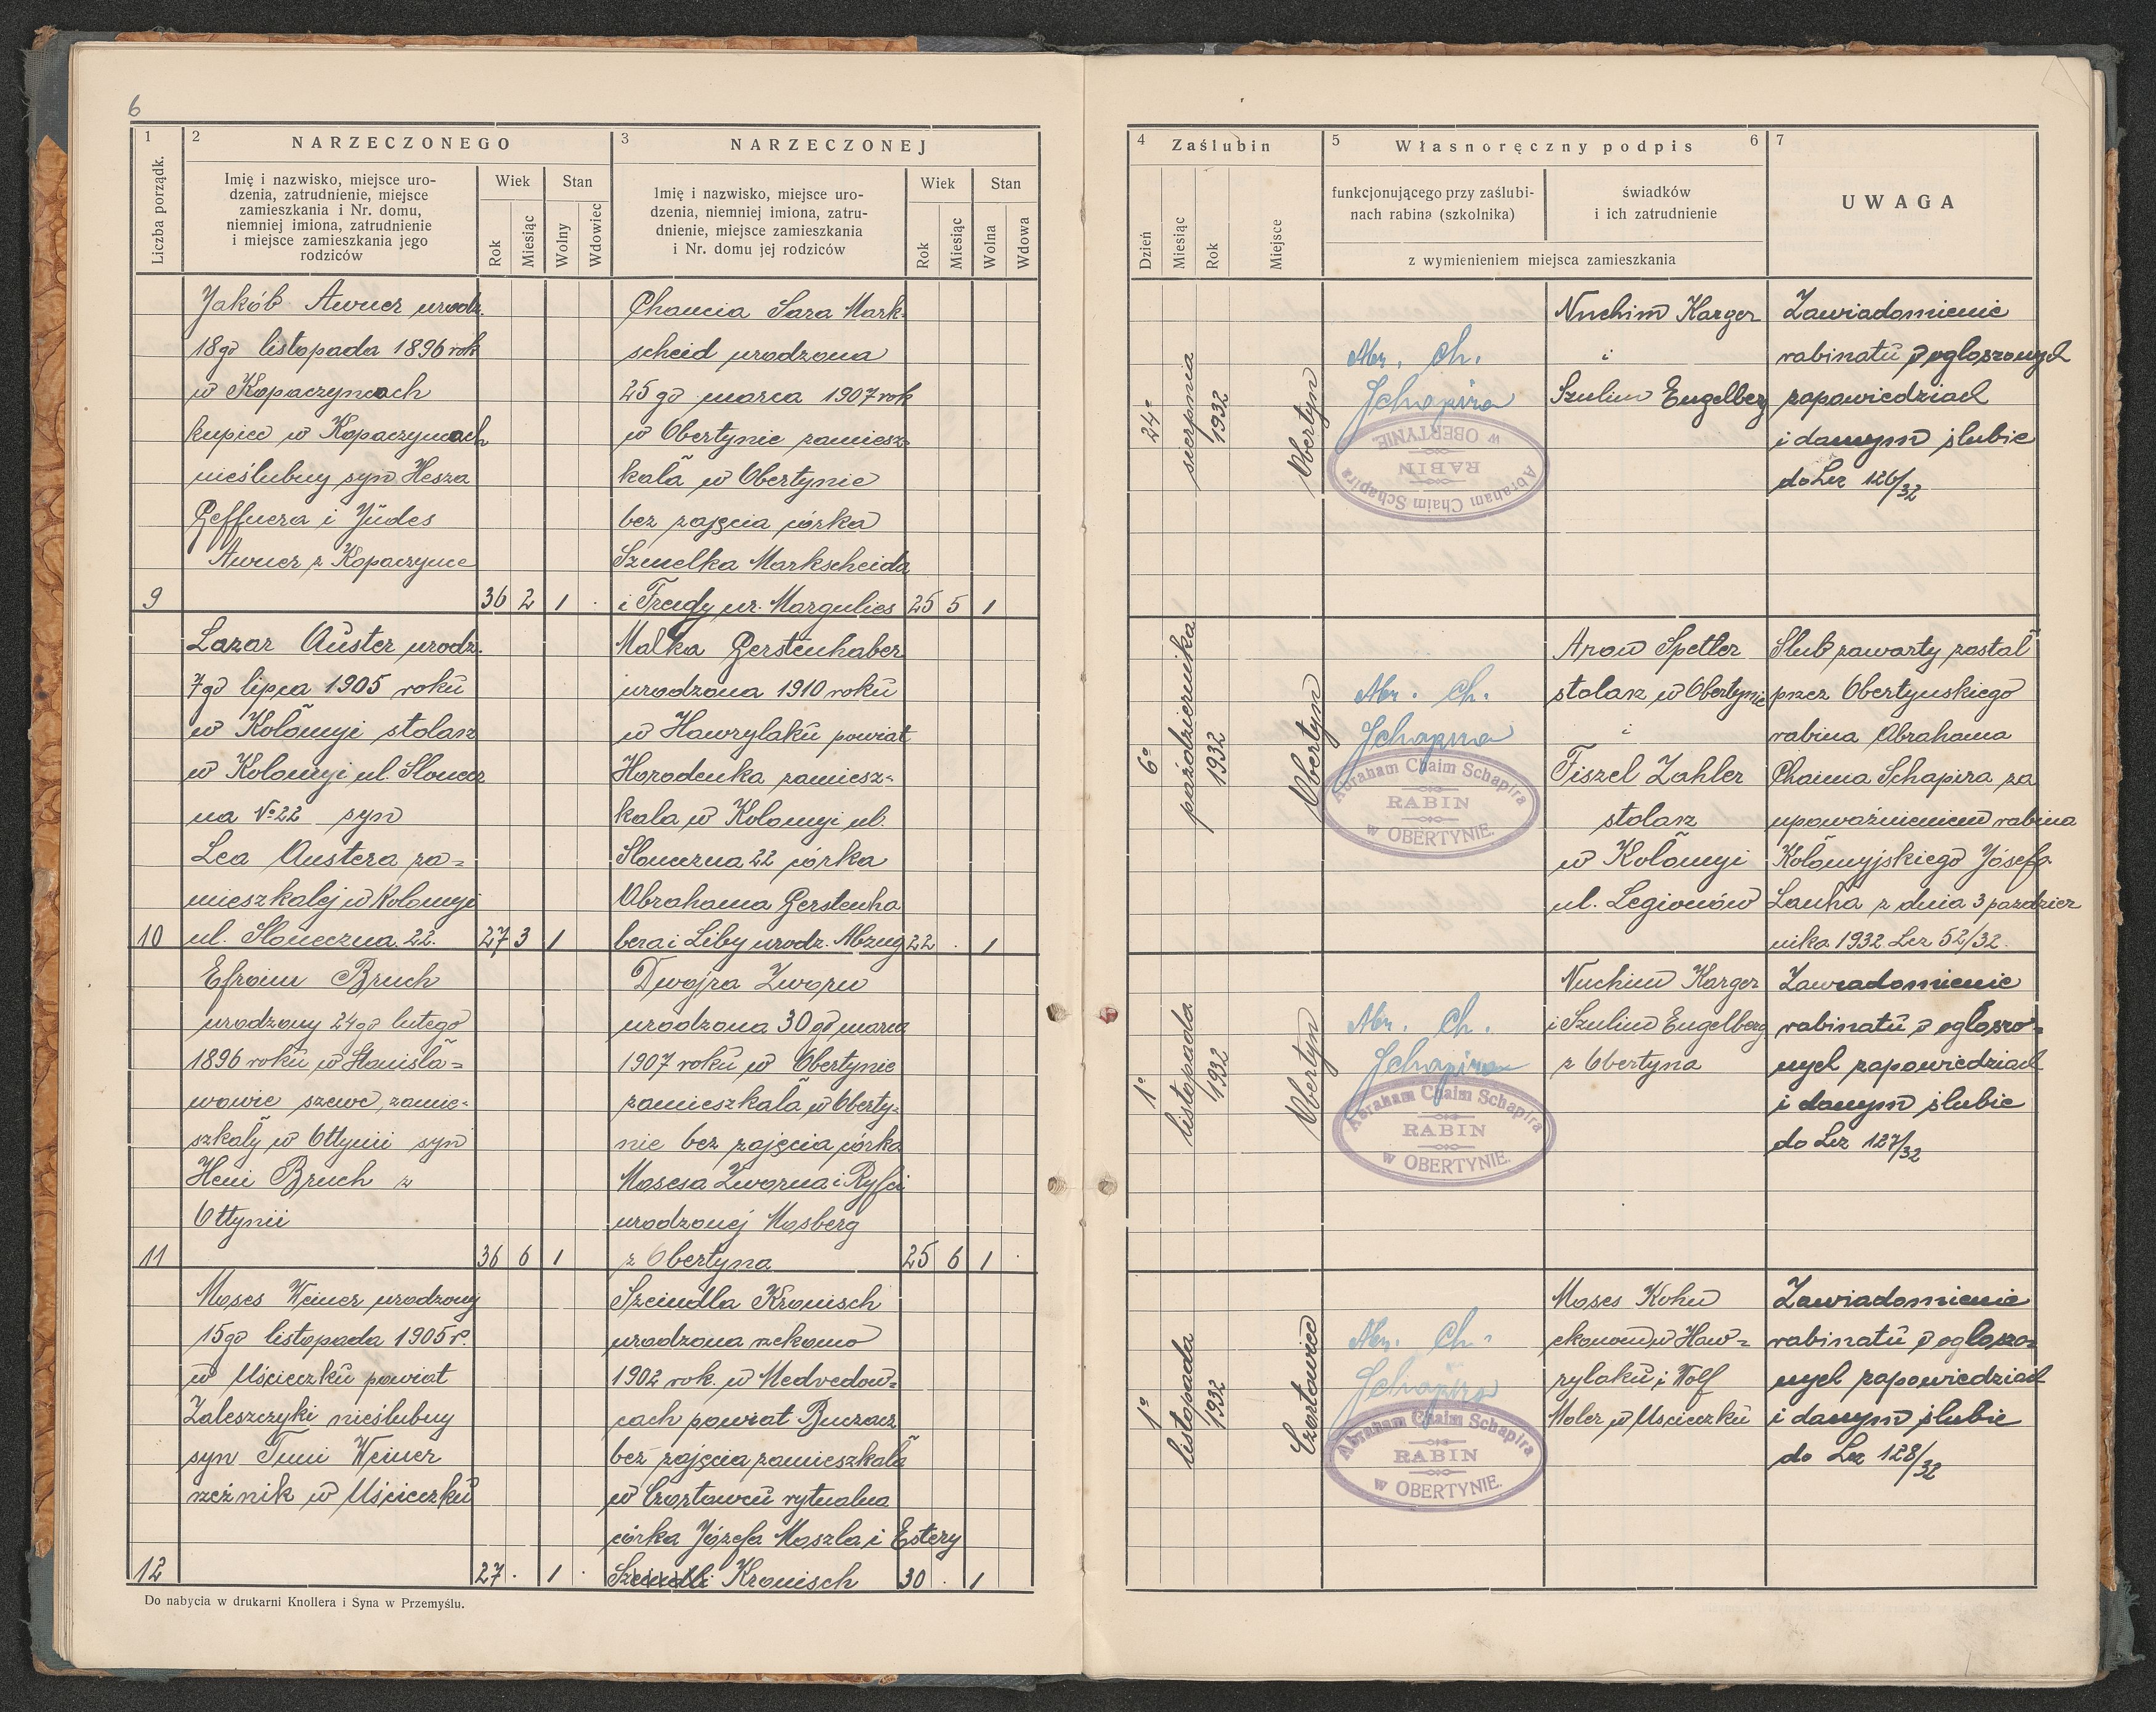 6
1
2
NARZECZONEGO
3
NARZECZONEJ
Liczba porządk.
Imię i nazwisko, miejsce uro-
dzenia, zatrudnienie, miejsce
zamieszkania i Nr. domu,
niemniej imiona, zatrudnienie
i miejsce zamieszkania jego
rodziców
Wiek
Stan
Rok
Miesiąc
Wolny
Wdowiec
Imię i nazwisko, miejsce uro-
dzenia, niemniej imiona, zatru-
dnienie, miejsce zamieszkania
i Nr. domu jej rodziców
Wiek
Stan
Rok
Miesiąc
Wolna
Wdowa
Jakób Awner urodz.
18go listopada 1896 rok
w Kopaczyncach
kupiec w Kopaczyncach
nieślubny syn Hesza
Geffnera i Jüdes
Awner z Kopaczyniec
9
36 2 1 .
Chancia Sara Mark-
scheid urodzona
25go marca 1907 rok
w Obertynie zamiesz-
kała w Obertynie
bez zajęcia córka
Szmelka Markscheida
i Frendy ur. Margulies 25 5 1
Lazar Auster urodz.
7go lipca 1905 roku
w Kołomyi stolarz
w Kołomyi ul. Słonecz
na № 22 syn
Lea Austera za=
mieszkałej w Kołomyi
10 ul. Słoneczna 22. 27 3 1
Malka Gerstenhaber
urodzona 1910 roku
w Hawrylaku powiat
Horodenka zamiesz-
kała w Kołomyi ul.
Słoneczna 22 córka
Abrahama Gerstenha
bera i Liby urodz. Abzug 22 . 1
Efroim Bruch
urodzony 24go lutego
1896 roku w Stanisła=
wowie szewc, zamie-
szkały w Ottynii syn
Heni Bruch z
Ottynii
11
36 6 1
Dwojra Zworn
urodzona 30go marca
1907 roku w Obertynie
zamieszkała w Oberty-
nie bez zajęcia córka
Mosesa Zworna i Ryfci
urodzonej Mosberg
z Obertyna 25 6 1 .
Moses Weiner urodzony
15go listopada 1905 r.
w Uścieczku powiat
Zaleszczyki nieślubny
syn Tuni Weiner
rzeźnik w Uścieczku
12
27 . 1 .
Szeindla Kronisch
urodzona rzekomo
1902 rok. w Medvedow=
cach powiat Buczacz
bez zajęcia zamieszkała
w Czortowcu rytualna
córka Józefa Moszla i Estery
Szeindli Kronisch 30 . 1
Do nabycia w drukarni Knollera i Syna w Przemyślu.
4
Zaślubin
5
Własnoręczny podpis
6
7
Dzień
Miesiąc
Rok
Miejsce
funkcjonującego przy zaślubi-
nach rabina (szkolnika)
świadków
i ich zatrudnienie
z wymienieniem miejsca zamieszkania
UWAGA
24º
sierpnia
1932
Obertyn
Abr. Ch.
Schapira
Abraham Chaim Schapira
RABIN
w OBERTYNIE.
Nuchim Karger
i
Szulim Engelberg
Zawiadomienie
rabinatu o ogłoszonych
zapowiedziach
i danym ślubie
do Lcz 126/32
6º
października
1932
Obertyn
Abr. Ch.
Schapira
Abraham Chaim Schapira
RABIN
w OBERTYNIE.
Aron Spetler
stolarz w Obertynie
i
Fiszel Zahler
stolarz
w Kołomyi
ul. Legionów
Ślub zawarty został
przez Obertyńskiego
rabina Abrahama
Chaima Schapira za
upoważnieniem rabina
Kołomyjskiego Józefa
Lauha z dnia 3 paździer
nika 1932 Lcz 52/32.
1º
listopada
1932
Obertyn
Abr. Ch.
Schapira
Abraham Chaim Schapira
RABIN
w OBERTYNIE.
Nuchim Karger
i Szulim Engelberg
z Obertyna
Zawiadomienie
rabinatu o ogłoszo-
nych zapowiedziach
i danym ślubie
do Lcz 127/32
1º
listopada
1932
Czortowiec
Abr. Ch.
Schapira
Abraham Chaim Schapira
RABIN
w OBERTYNIE.
Moses Kohn
ekonom w Haw=
rylaku i Wolf
Moler w Uścieczku
Zawiadomienie
rabinatu o ogłoszo-
nych zapowiedziach
i danym ślubie
do Lcz 128/32